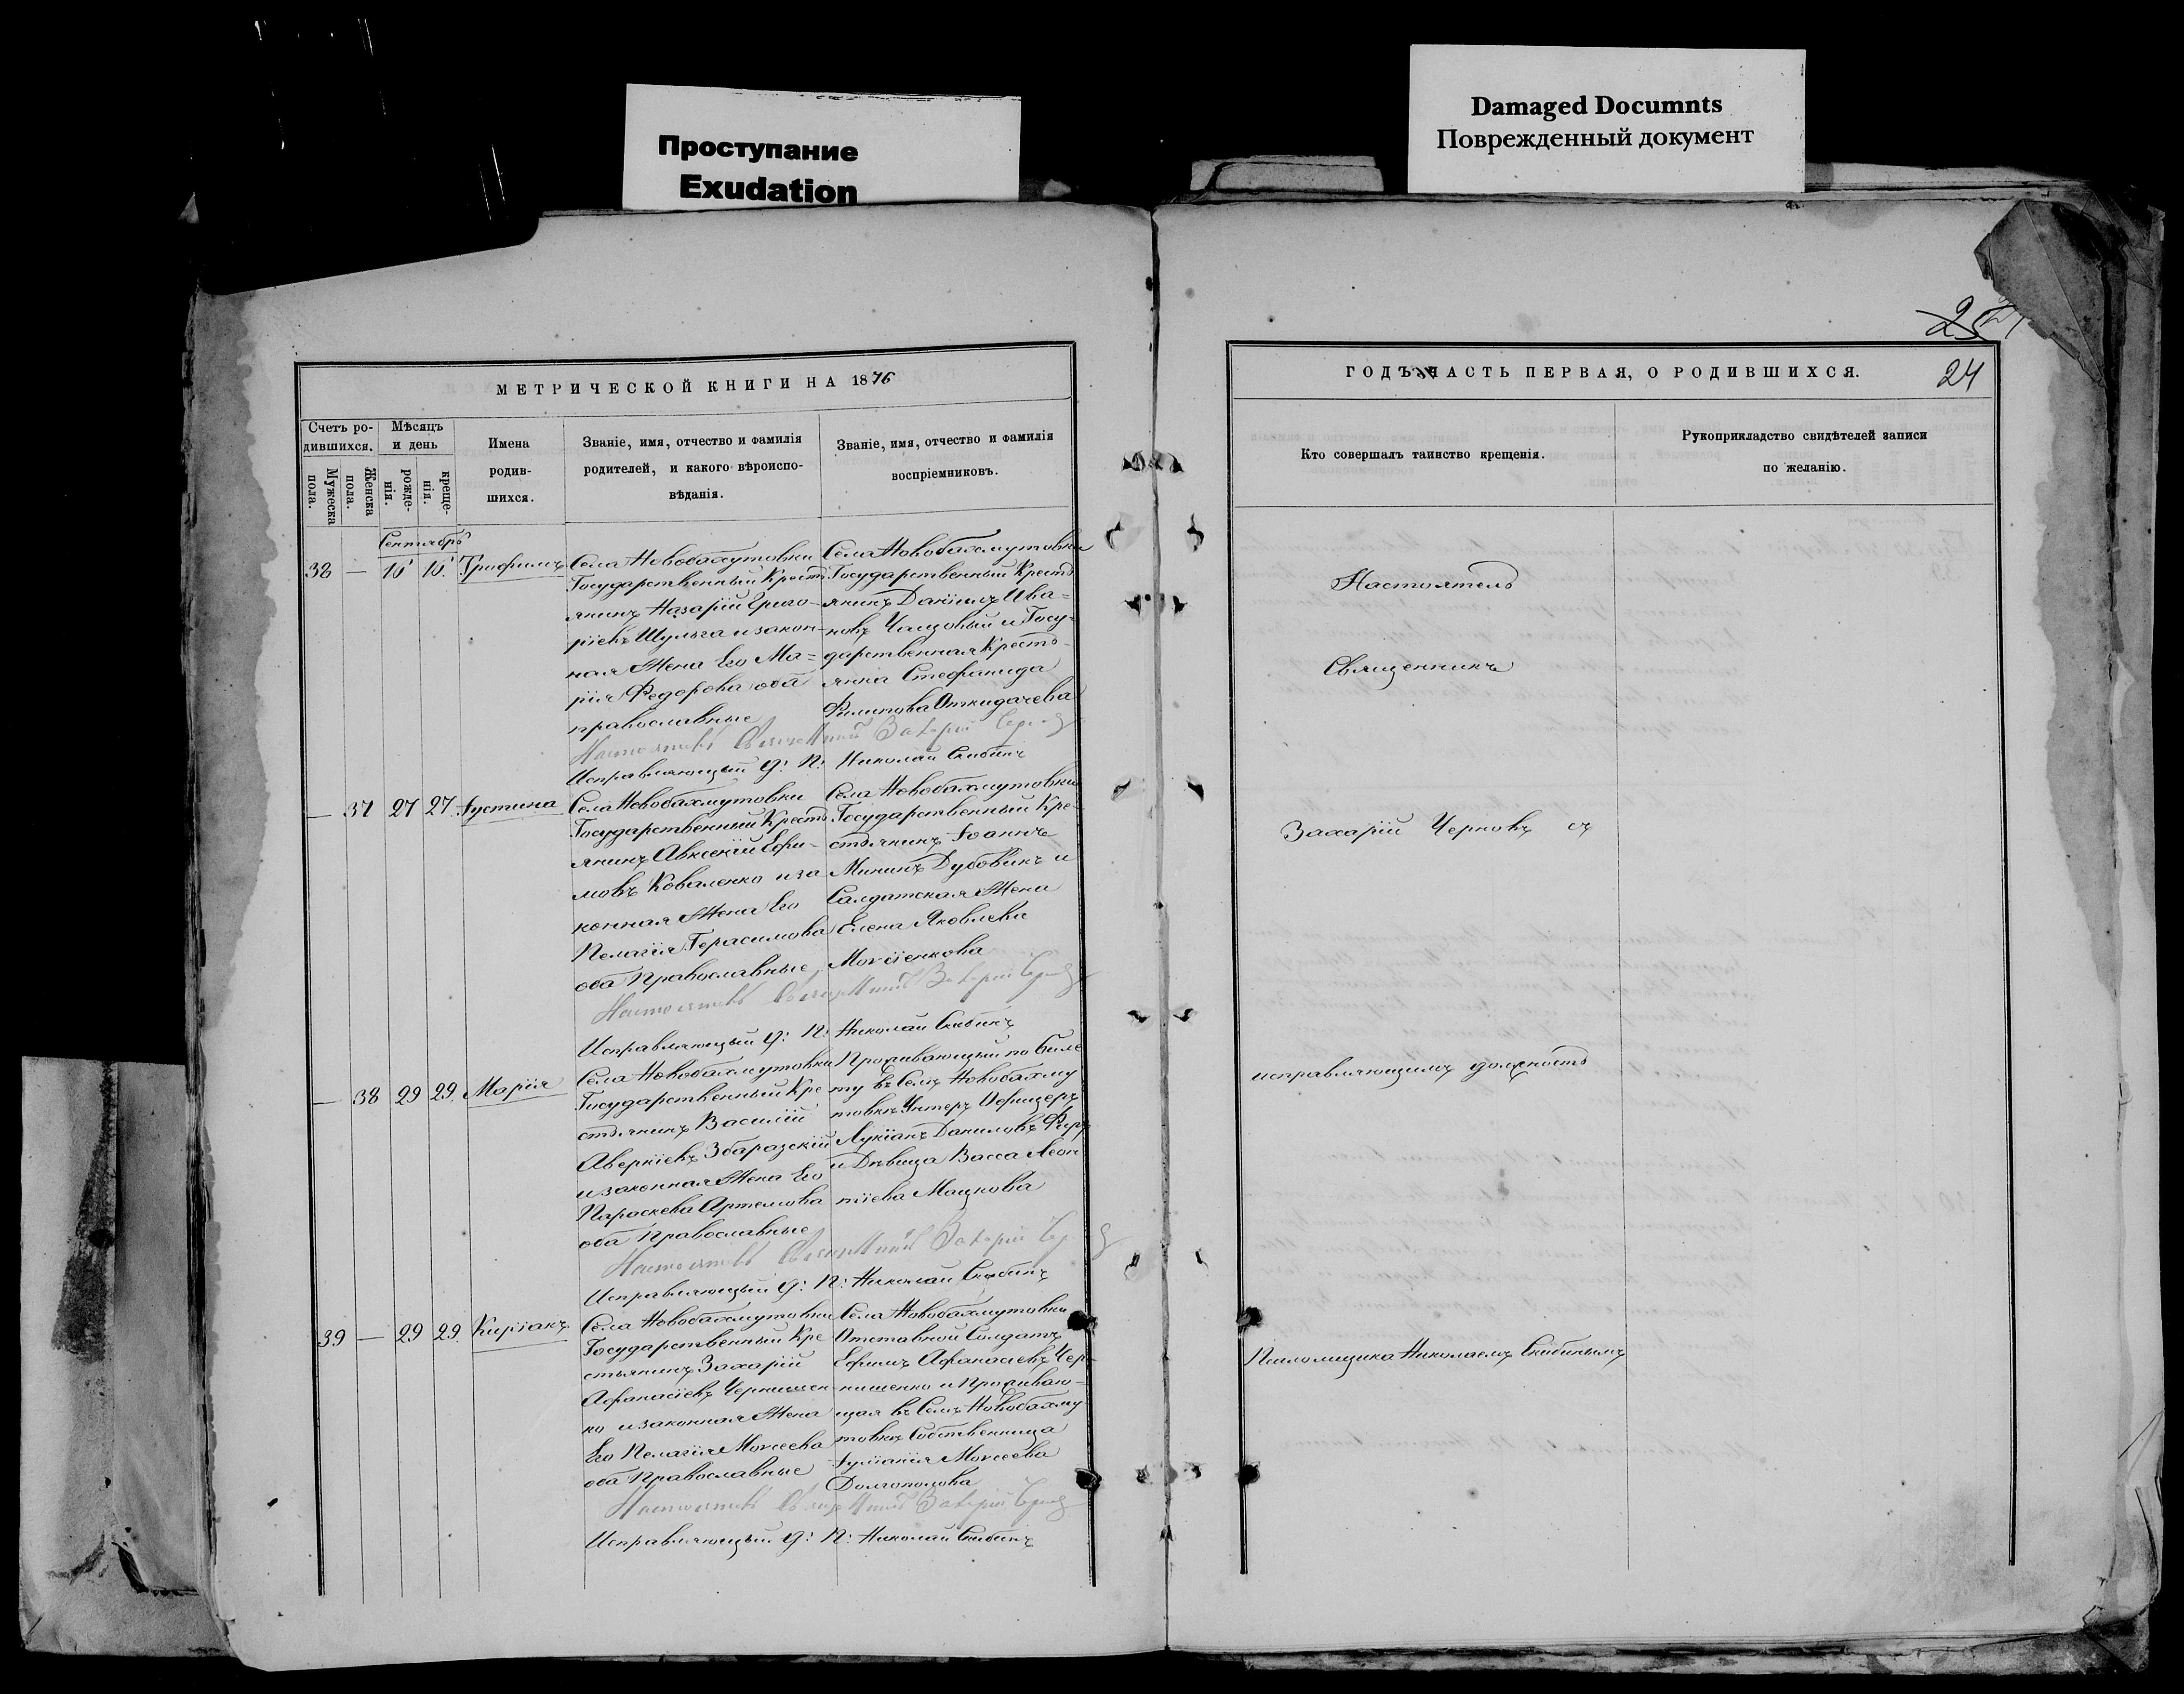 Проступание
Exudation
Damaged Documnts
Поврежденный документ
МЕТРИЧЕСКОЙ КНИГИ НА 1876
Счетъ ро-
дившихся.
Мужеска
пола.
Женска
пола.
Мѣсяцъ
и день
рожде-
нія.
креще-
нія.
Имена
родив-
шихся.
Званіе, имя, отчество и фамилія
родителей, и какого вѣроиспо-
вѣданія.
Званіе, имя, отчество и фамилія
воспріемниковъ.
Сентябрь
38 — Трофимъ
Села Новобахмутовки
Государственный Кресть
янинъ Назарій Григо-
ріевъ Шульга и закон-
ная Жена Его Ма=
рія Федорова оба
православные
Села Новобахмутовки
Государственный Кресть
янинъ Даніилъ Ива=
новъ и Госу-
дарственная Кресть-
янка Стефанида
Филипова Откидачева
Настоятель Священникъ Захарій
Исправляющій д: П: Николай Скибинъ
— 37 27 27. Іустина
Села Новобахмутовки
Государственный Кресть
янинъ Авксентій Ефи-
мовъ Коваленко и за
конная Жена Его
Пелагія Герасимова
оба Православные
Села Новобахмутовки
Государственный Кре-
стьянинъ Іоаннъ
Мининъ Дубовикъ и
Салдатская Жена
Елена Яковлева
Моисіенкова
Настоятель Священникъ Захарій
Исправляющій д: П: Николай Скибинъ
— 38 29 29. Марія
Села Новобахмутовки
Государственный Кре
стьянинъ Василій
Аверкіевъ Збаразскій
и законная Жена Его
Параскева Артемова
оба Православные
Проживающій по биле
ту въ Селѣ Новобахму
товкѣ Унтеръ Офицеръ
Лукіанъ Даниловъ
и Дѣвица Васса Леон
тіева Мацкова
Настоятель Священникъ Захарій
Исправляющій д: П: Николай Скибинъ
39 — 29 29. Киріакъ
Села Новобахмутовки
Государственный Кре
стьянинъ Захарій
Афанасіевъ Чернишен
ко и законная Жена
Его Пелагія Моисеева
оба Православные
Села Новобахмутовки
Отставной Солдатъ
Ефимъ Афанасіевъ Чер-
нишенко и Прожива-
ющая въ Селѣ Новобахму
товкѣ Собственница
Іуліанія Моисеева
Долгополова
Настоятель Священникъ Захарій
Исправляющій д: П: Николай Скибинъ
ГОДЪ ЧАСТЬ ПЕРВАЯ, О РОДИВШИХСЯ.
25
24
Кто совершалъ таинство крещенія.
Рукоприкладство свидѣтелей записи
по желанію.
Настоятель
Священникъ
Захарій Черновъ съ
исправляющимъ должность
Псаломщика Николаемъ Скибинымъ